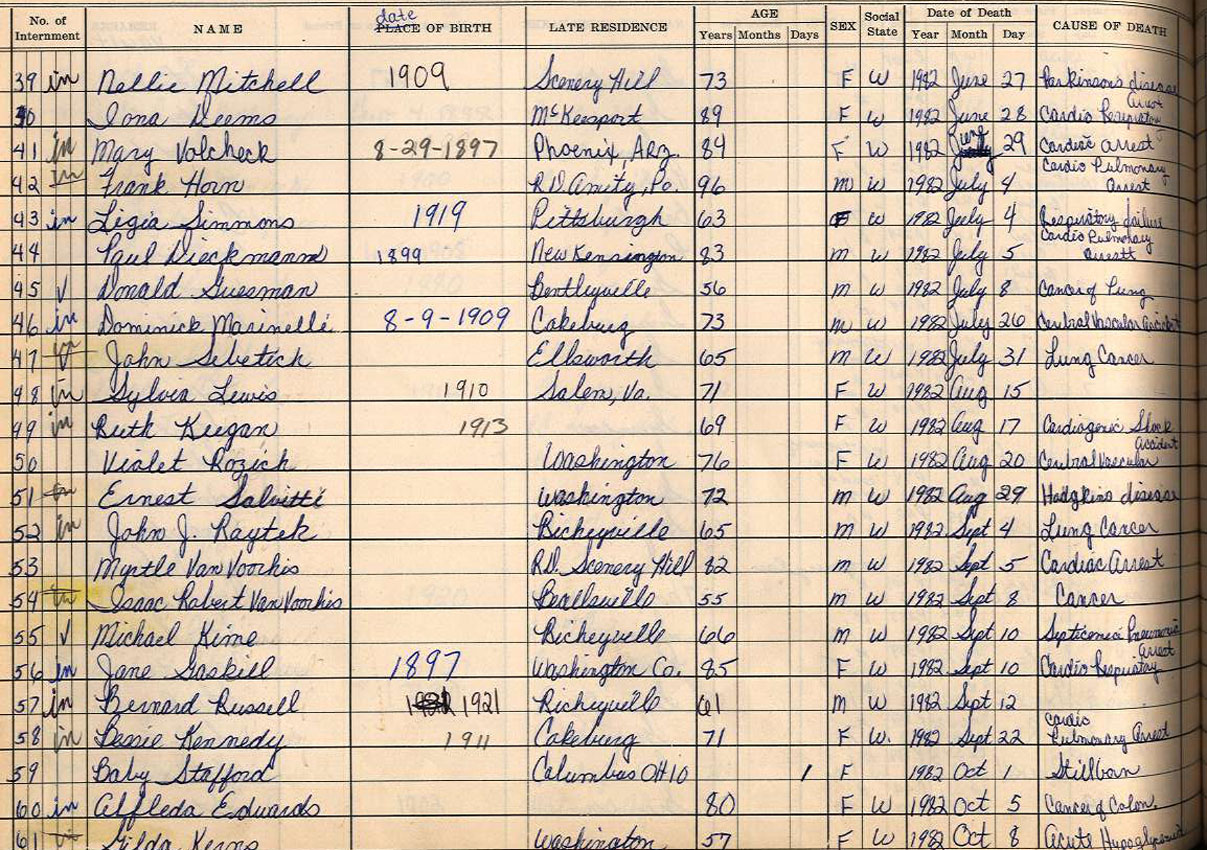 No. of Internment NAME date PLACE OF BIRTH LATE RESIDENCE AGE Years Months Days SEX Social State Date of Death Year Month Day CAUSE OF DEATH
39 in Nellie Mitchell 1909 Scenery Hill 73 F W 1982 June 27 Parkinsons disease
40 Iona Deems McKeesport 89 F W 1982 June 28 Cardio Respiratory arrest
41 in Mary Volcheck 8-29-1897 Phoenix, Arz. 84 F W 1982 June 29 Cardiac arrest
42 in Frank Horn R.D. Amity, Pa. 96 m W 1982 July 4 Cardio Pulmonary arrest
43 in Ligia Simmons 1919 Pittsburgh 63 F W 1982 July 4 Respiratory failure
44 Paul Dieckmann 1899 New Kensington 83 m W 1982 July 5 Cardio Pulmonary arrestt
45 √ Donald Sussman Bentleyville 56 m W 1982 July 8 Cancer of Lung
46 in Dominick Marinelli 8-9-1909 Cokeburg 73 m W 1982 July 26 Cerebral Vascular accident
47 John Sebetich Ellsworth 65 m W 1982 July 31 Lung Cancer
48 in Sylvia Lewis 1910 Salem, Va. 71 F W 1982 Aug 15
49 in Ruth Keegan 1913 69 F W 1982 Aug 17 Cardiogenic Shock
50 Violet Rozich Washington 76 F W 1982 Aug 20 Cerebral Vascular accident
51 in Ernest Salvitti Washington 72 m W 1982 Aug 29 Hodgkins disease
52 in John J. Raytek Richeyville 65 m W 1982 Sept 4 Lung Cancer
53 Myrtle Van Voorhis R.D. Scenery Hill 82 m W 1982 Sept 5 Cardiac Arrest
54 in Isaac Robert Van Voorhis Beallsville 55 m W 1982 Sept 8 Cancer
55 √ Michael Kime Richeyville 66 m W 1982 Sept 10 Septicemia Pneumonia
56 in Jane Gaskill 1897 Washington Co. 85 F W 1982 Sept 10 Cardio Respiratory arrest
57 in Bernard Russell 1921 Richeyville 61 m W 1982 Sept 12
58 in Bessie Kennedy 1911 Cokeburg 71 F W. 1982 Sept 22 Cardio Pulmonary Arrest
59 Baby Stafford Columbus OHIO 1 F 1982 Oct 1 Stillborn
60 in Alfleda Edwards 80 F W 1982 Oct 5 Cancer of Colon.
61 in Gilda Kerns Washington 57 F W 1982 Oct 8 Acute